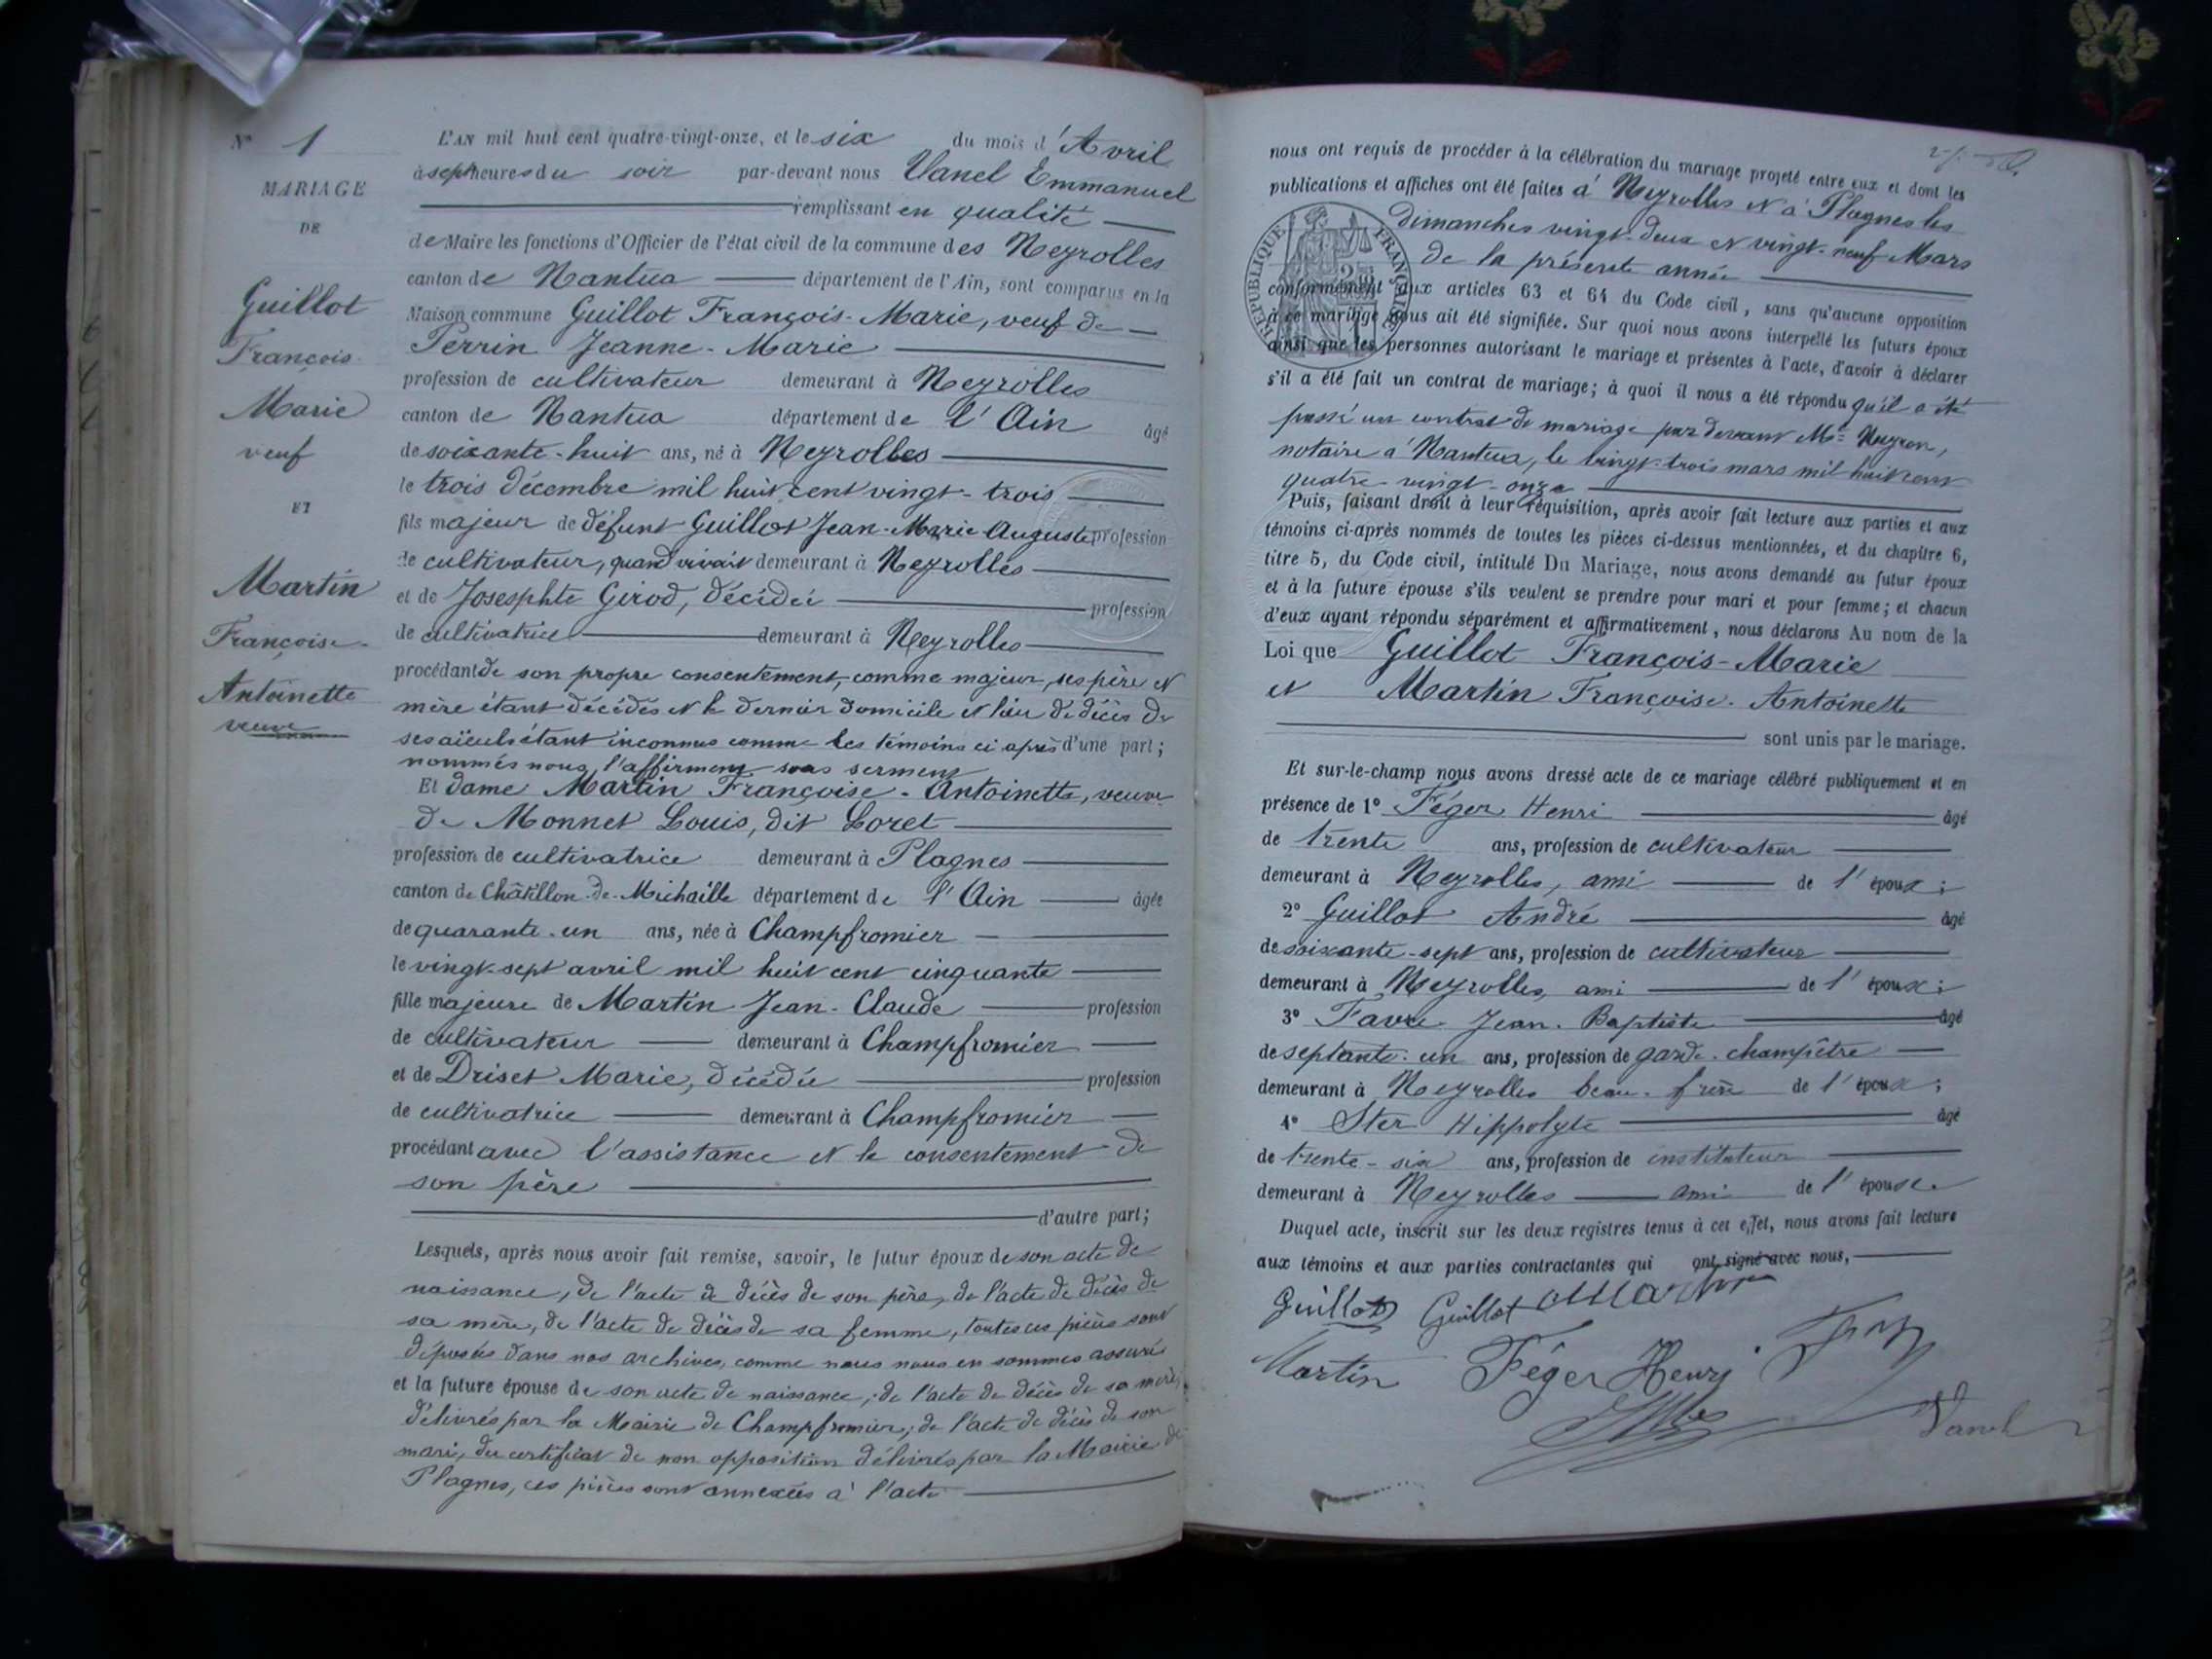 N° 1
MARIAGE
DE
Guillot
François-
Marie
veuf
ET
Martin
Françoise-
Antoinette
veuve
L'AN mil huit cent quatre-vingt-onze, et le six du mois d'Avril
à sept heures du soir par-devant nous Vanel Emmanuel
remplissant en qualité
de Maire les fonctions d'Officier de l'état civil de la commune des Neyrolles
canton de Nantua département de l'Ain, sont comparus en la
Maison commune Guillot François-Marie, veuf de
Perrin Jeanne-Marie
profession de cultivateur demeurant à Neyrolles
canton de Nantua département de l'Ain âgé
de soixante-huit ans, né à Neyrolles
le trois décembre mil huit cent vingt-trois
fils majeur de défunt Guillot Jean-Marie Auguste profession
de cultivateur, quand vivait demeurant à Neyrolles
et de Josephte Girod, décédée profession
de cultivatrice demeurant à Neyrolles
procédant de son propre consentement, comme majeur, ses père et
mère étant décédés et le dernier domicile et lieu de décès de
ses aïeuls étant inconnus comme les témoins ci après d'une part;
nommés nous l'affirment sous serment
Et dame Martin Françoise-Antoinette, veuve
de Monnet Louis, dit Loret
profession de cultivatrice demeurant à Plagnes
canton de Châtillon-de-Michaille département de l'Ain âgée
de quarante-un ans, née à Champfromier
le vingt-sept avril mil huit cent cinquante
fille majeure de Martin Jean-Claude profession
de cultivateur demeurant à Champfromier
et de Driset Marie, décédée profession
de cultivatrice demeurant à Champfromier
procédant avec l'assistance et le consentement de
son père
d'autre part;
Lesquels, après nous avoir fait remise, savoir, le futur époux de son acte de
naissance, de l'acte de décès de son père, de l'acte de décès de
sa mère, de l'acte de décès de sa femme, toutes ces pièces sont
déposées dans nos archives, comme nous nous en sommes assurés
et la future épouse de son acte de naissance, de l'acte de décès de sa mère,
délivrés par la Mairie de Champfromier; de l'acte de décès de son
mari, du certificat de non opposition délivrés par la Mairie de
Plagnes, ces pièces sont annexées à l'acte
nous ont requis de procéder à la célébration du mariage projeté entre eux et dont les
publications et affiches ont été faites à Neyrolles et à Plagnes les
dimanches vingt-deux et vingt-neuf Mars
de la présente année
RÉPUBLIQUE FRANÇAISE
conformément aux articles 63 et 64 du Code civil, sans qu'aucune opposition
à ce mariage nous ait été signifiée. Sur quoi nous avons interpellé les futurs époux
ainsi que les personnes autorisant le mariage et présentes à l'acte, d'avoir à déclarer
s'il a été fait un contrat de mariage; à quoi il nous a été répondu qu'il a été
passé un contrat de mariage par devant Me Neyron,
notaire à Nantua, le vingt-trois mars mil huit cent
quatre-vingt-onze
Puis, faisant droit à leur réquisition, après avoir fait lecture aux parties et aux
témoins ci-après nommés de toutes les pièces ci-dessus mentionnées, et du chapitre 6,
titre 5, du Code civil, intitulé Du Mariage, nous avons demandé au futur époux
et à la future épouse s'ils veulent se prendre pour mari et pour femme; et chacun
d'eux ayant répondu séparément et affirmativement, nous déclarons Au nom de la
Loi que Guillot François-Marie
et Martin Françoise-Antoinette
sont unis par le mariage.
Et sur-le-champ nous avons dressé acte de ce mariage célébré publiquement et en
présence de 1° Féger Henri âgé
de trente ans, profession de cultivateur
demeurant à Neyrolles, ami de l'époux;
2° Guillot André âgé
de soixante-sept ans, profession de cultivateur
demeurant à Neyrolles, ami de l'époux;
3° Favre Jean-Baptiste âgé
de septante-un ans, profession de garde-champêtre
demeurant à Neyrolles beau-frère de l'époux;
4° Ster Hippolyte âgé
de trente-six ans, profession de instituteur
demeurant à Neyrolles ami de l'épouse.
Duquel acte, inscrit sur les deux registres tenus à cet effet, nous avons fait lecture
aux témoins et aux parties contractantes qui ont signé avec nous,
Guillot Guillot Martin
Martin Féger Henri
Vanel